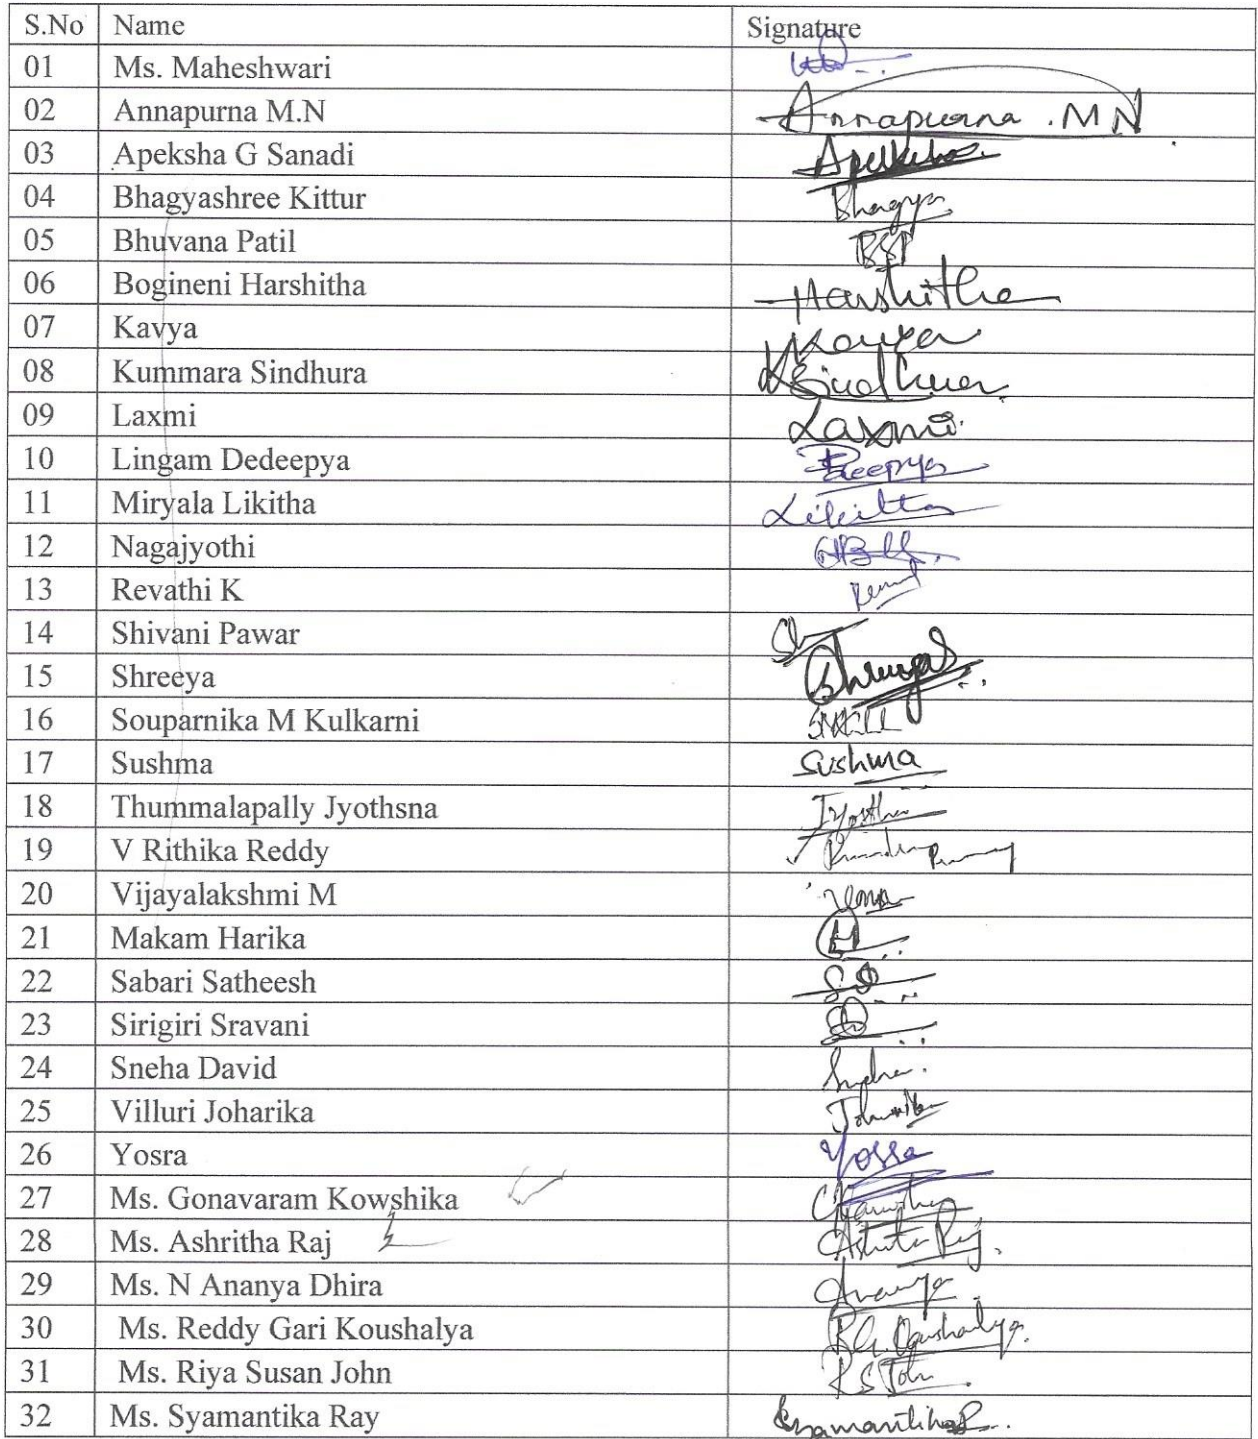 S.No Name Signature
01 Ms. Maheshwari
02 Annapurna M.N Annapurna .M N
03 Apeksha G Sanadi Apeksha
04 Bhagyashree Kittur Bhagya
05 Bhuvana Patil BSP
06 Bogineni Harshitha Harshitha
07 Kavya Kavya
08 Kummara Sindhura K Sindhura
09 Laxmi Laxmi
10 Lingam Dedeepya Deepya
11 Miryala Likitha Likitha
12 Nagajyothi
13 Revathi K
14 Shivani Pawar
15 Shreeya
16 Souparnika M Kulkarni
17 Sushma Sushma
18 Thummalapally Jyothsna
19 V Rithika Reddy
20 Vijayalakshmi M
21 Makam Harika
22 Sabari Satheesh
23 Sirigiri Sravani
24 Sneha David
25 Villuri Joharika
26 Yosra Yosra
27 Ms. Gonavaram Kowshika
28 Ms. Ashritha Raj
29 Ms. N Ananya Dhira Ananya
30 Ms. Reddy Gari Koushalya R.G. Koushalya
31 Ms. Riya Susan John R S John
32 Ms. Syamantika Ray